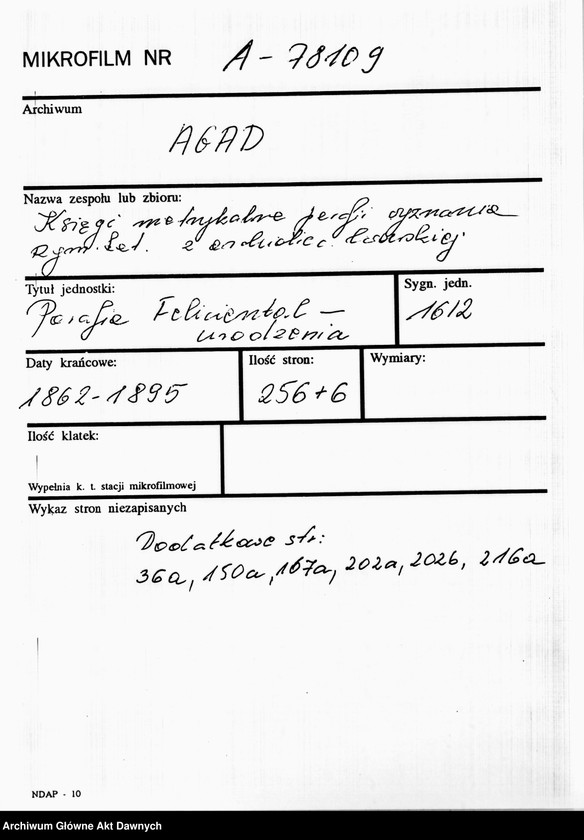 MIKROFILM NR A-78109
Archiwum
AGAD
Nazwa zespołu lub zbioru:
Księgi metrykalne parafii wyznania
Rzym. Kat. z archidiec. lwowskiej
Tytuł jednostki:
Parafia Felicientol —
urodzenia
Sygn. jedn.
1612
Daty krańcowe:
1862-1895
Ilość stron:
256+6
Wymiary:
Ilość klatek:
Wypełnia k. t. stacji mikrofilmowej
Wykaz stron niezapisanych
Dodatkowe str:
36a, 150a, 167a, 202a, 202b, 216a
NDAP - 10
Archiwum Główne Akt Dawnych